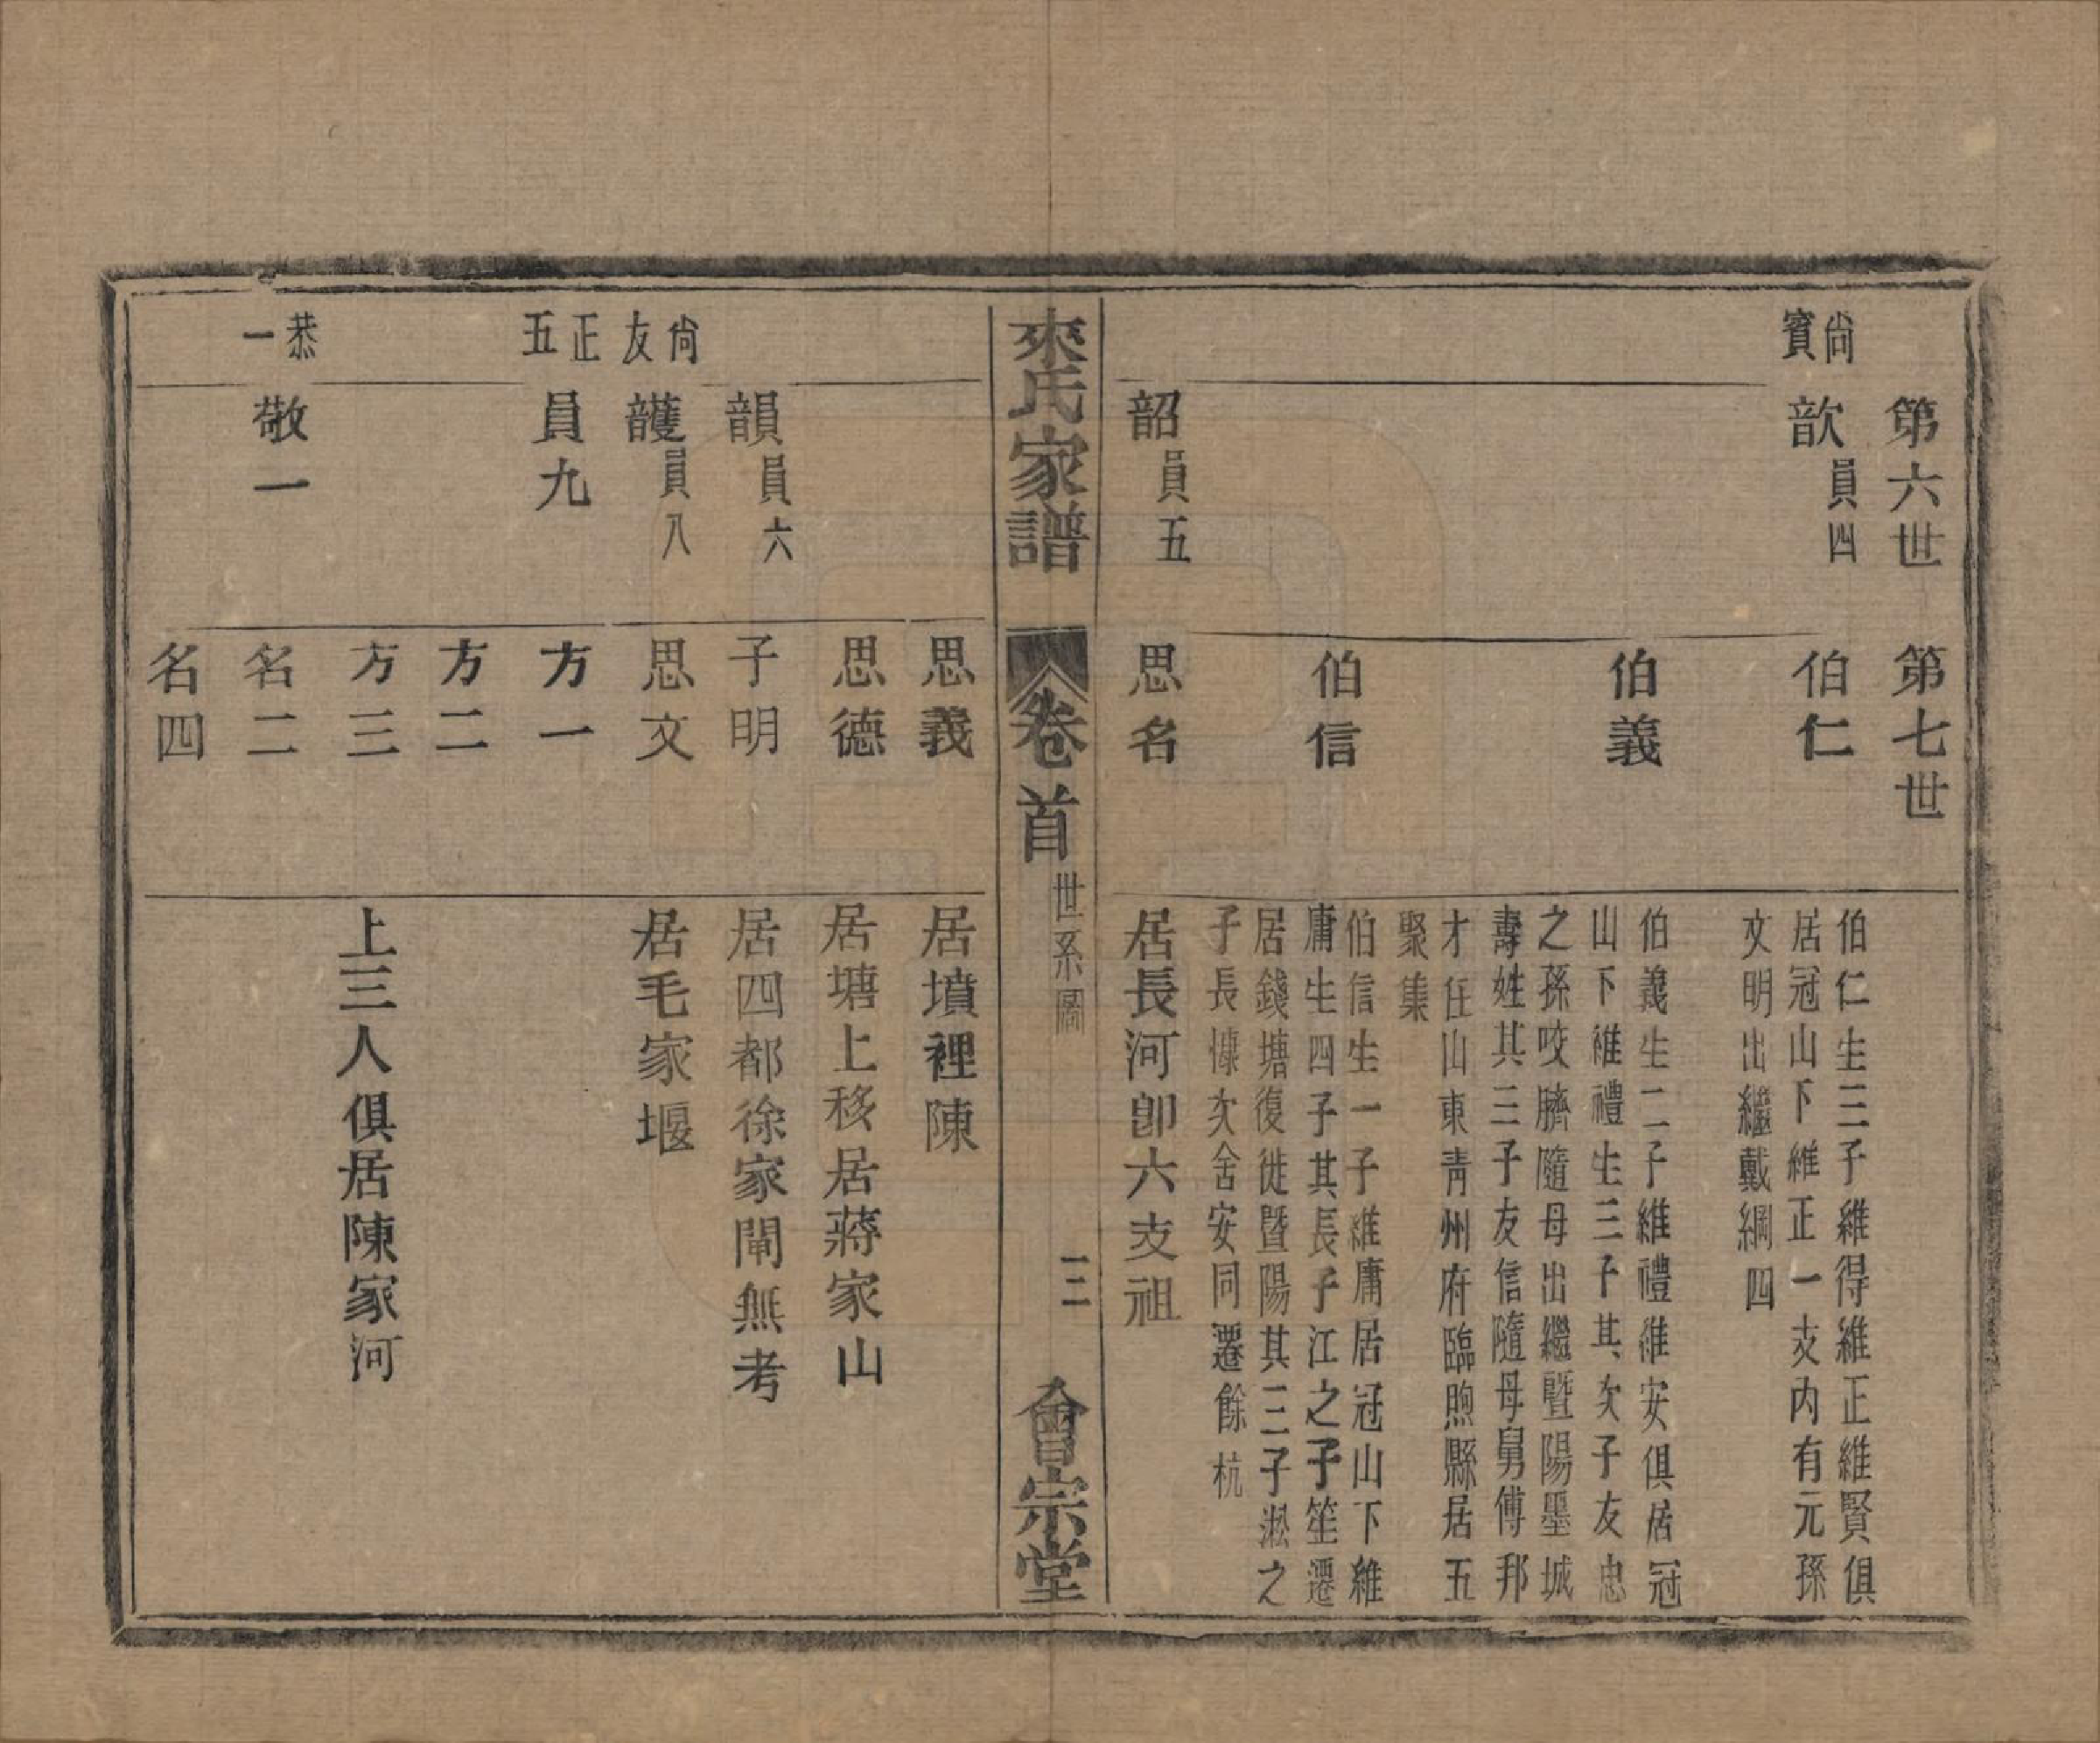 第六世
第七世
尚賓
歆員四
伯仁
伯仁生三子維得維正維賢俱
居冠山下維正一支内有元孫
文明出繼戴綱四
伯義
伯義生二子維禮維安俱居冠
山下維禮生三子其次子友忠
之孫咬臍隨母出繼暨陽墨城
壽姓其三子友信隨母舅傅邦
才任山東青州府臨煦縣居五
聚集
伯信
伯信生一子維庸居冠山下維
庸生四子其長子江之子笙遷
居錢塘復徙暨陽其三子淞之
子長慷次舍安同遷餘杭
韶員五
思名
居長河卽六支祖
來氏家譜
卷首
世系圖
十二
會宗堂
思義
居墳裡陳
思德
居塘上移居蔣家山
韻員六
子明
居四都徐家閘無考
尚友
頀員八
思文
居毛家堰
正五
員九
方一
方二
方三
上三人俱居陳家河
恭一
敬一
名二
名四